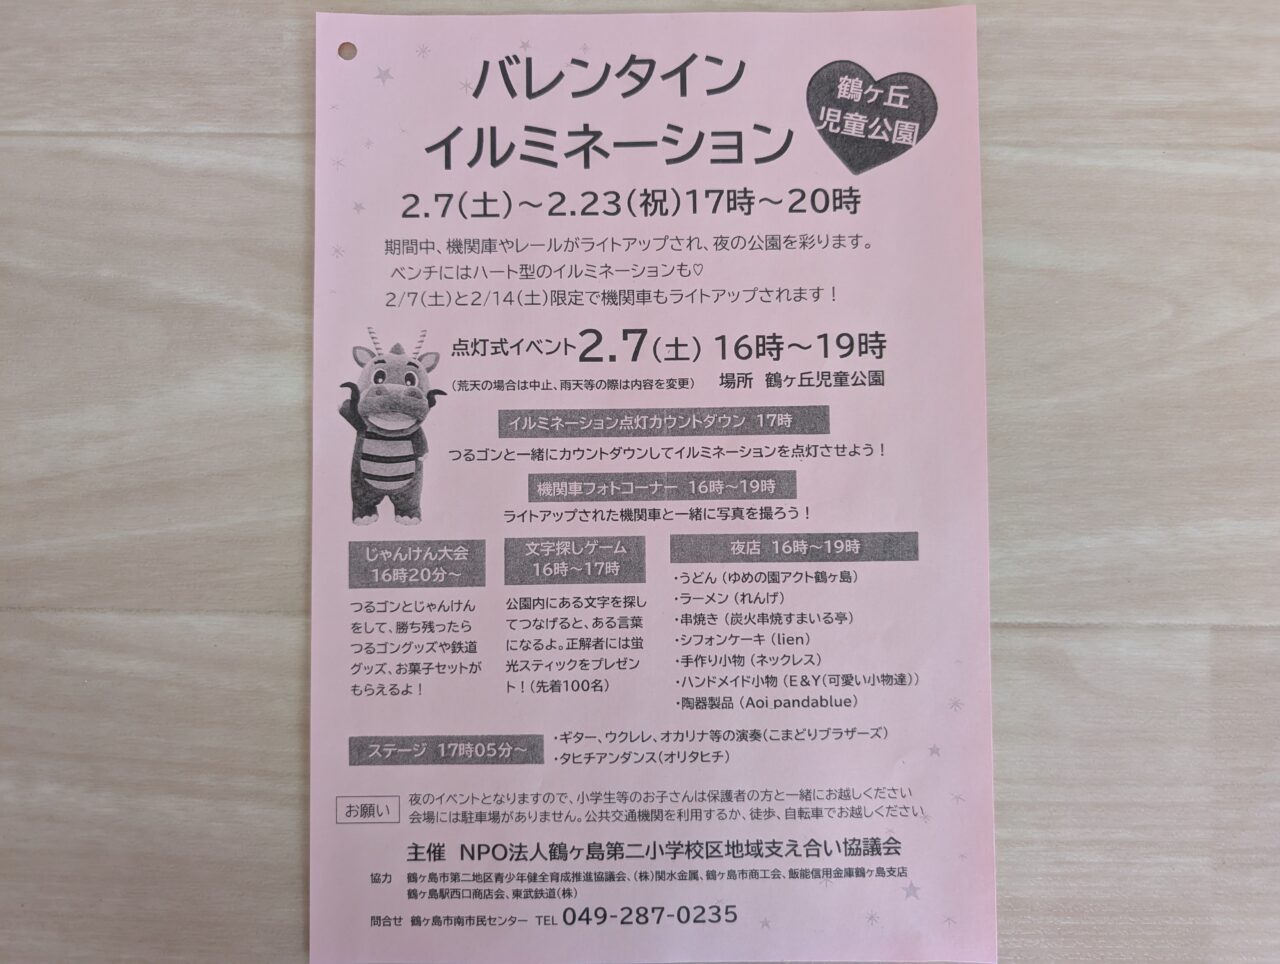 バレンタイン
イルミネーション
鶴ヶ丘
児童公園
2.7(土)～2.23(祝)17時～20時
期間中、機関庫やレールがライトアップされ、夜の公園を彩ります。
ベンチにはハート型のイルミネーションも♡
2/7(土)と2/14(土)限定で機関車もライトアップされます！
点灯式イベント2.7(土) 16時～19時
(荒天の場合は中止、雨天等の際は内容を変更) 場所 鶴ヶ丘児童公園
イルミネーション点灯カウントダウン 17時
つるゴンと一緒にカウントダウンしてイルミネーションを点灯させよう！
機関車フォトコーナー 16時～19時
ライトアップされた機関車と一緒に写真を撮ろう！
じゃんけん大会
16時20分～
つるゴンとじゃんけん
をして、勝ち残ったら
つるゴングッズや鉄道
グッズ、お菓子セットが
もらえるよ！
文字探しゲーム
16時～17時
公園内にある文字を探し
てつなげると、ある言葉
になるよ。正解者には蛍
光スティックをプレゼン
ト！(先着100名)
夜店 16時～19時
・うどん (ゆめの園アクト鶴ヶ島)
・ラーメン (れんげ)
・串焼き (炭火串焼すまいる亭)
・シフォンケーキ (lien)
・手作り小物 (ネックレス)
・ハンドメイド小物 (E＆Y(可愛い小物達))
・陶器製品 (Aoi_pandablue)
ステージ 17時05分～
・ギター、ウクレレ、オカリナ等の演奏(こまどりブラザーズ)
・タヒチアンダンス(オリタヒチ)
お願い
夜のイベントとなりますので、小学生等のお子さんは保護者の方と一緒にお越しください
会場には駐車場がありません。公共交通機関を利用するか、徒歩、自転車でお越しください。
主催 NPO法人鶴ヶ島第二小学校区地域支え合い協議会
協力 鶴ヶ島市第二地区青少年健全育成推進協議会、(株)関水金属、鶴ヶ島市商工会、飯能信用金庫鶴ヶ島支店
鶴ヶ島駅西口商店会、東武鉄道(株)
問合せ 鶴ヶ島市南市民センター TEL 049-287-0235